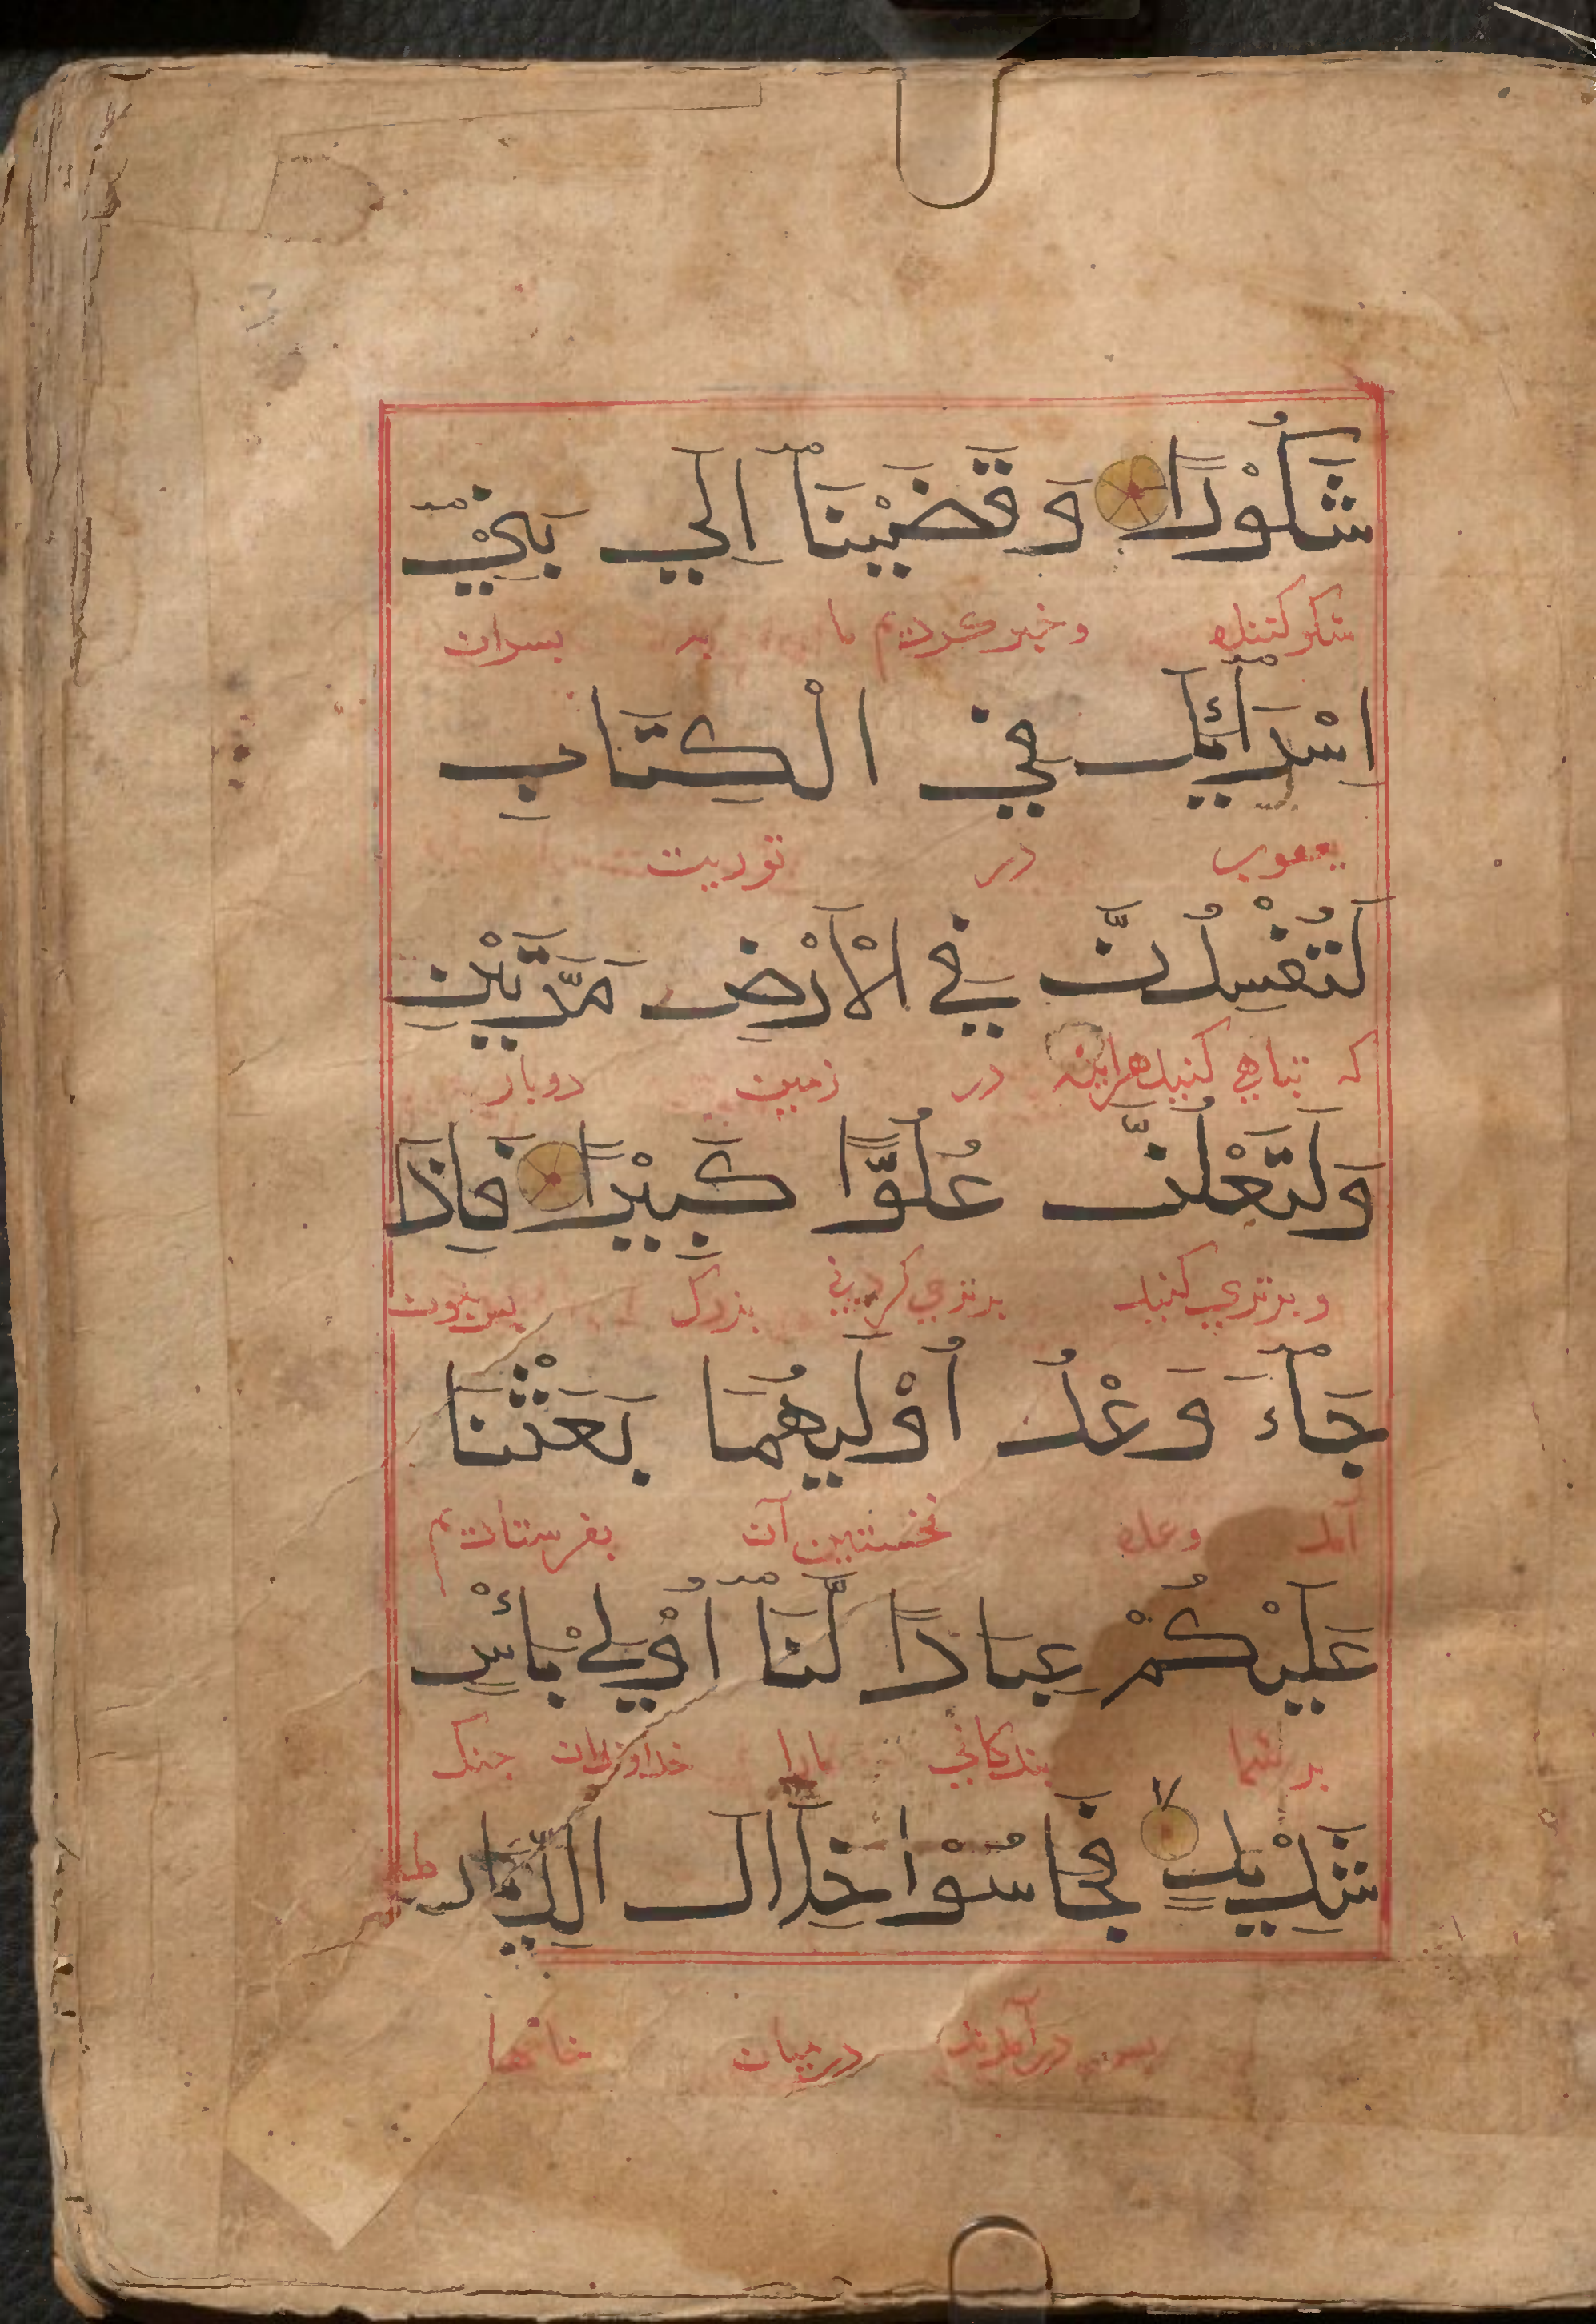 شَكُوْرًا وَقَضَيْنَآ اِلَي بَنِيْٓ
شکر کننده وخبر کردیم ما به بسران
اِسْرَآئِيلَ فِي الْكِتَابِ
یعقوب در توریت
لَتُفْسِدُنَّ فِي الْاَرْضِ مَرَّتَيْنِ
که تباهي کنید هراینه در زمین دوبار
وَلَتَعْلُنَّ عُلُوًّا كَبِيْرًا فَاِذَا
وبرتري کنید برتري کردني بزرک بس جون
جَآءَ وَعْدُ اُوْلَيهُمَا بَعَثْنَا
آمد وعده نخستین آن بفرستادیم
عَلَيْكُمْ عِبَادًا لَّنَآ اُوْلِي بَأْسٍ
بر شما بندکاني مارا خداوندان جنک
شَدِيْدٍ لا فَجَاسُوْا خِلَالَ الدِّيَارِ ط
بس درآمدند درمیان خانها